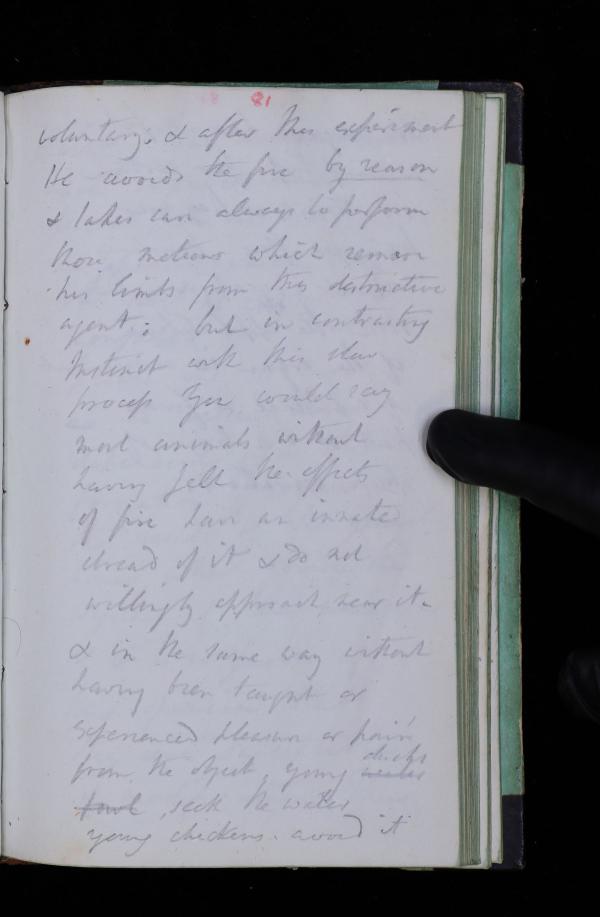 81
voluntary; & after this experiment
He avoids the fire by reason
& takes care always to perform
those motions which remove
his limbs from this destructive
agent; but in contrasting
Instinct with this slow
process You would say
most animals without
having felt the effects
of fire have an innate
dread of it & do not
willingly approach near it -
& in the same way without
having been taught or
experienced pleasure or pain
ducks
from the object, young water
fowl, seek the water
young chickens avoid it